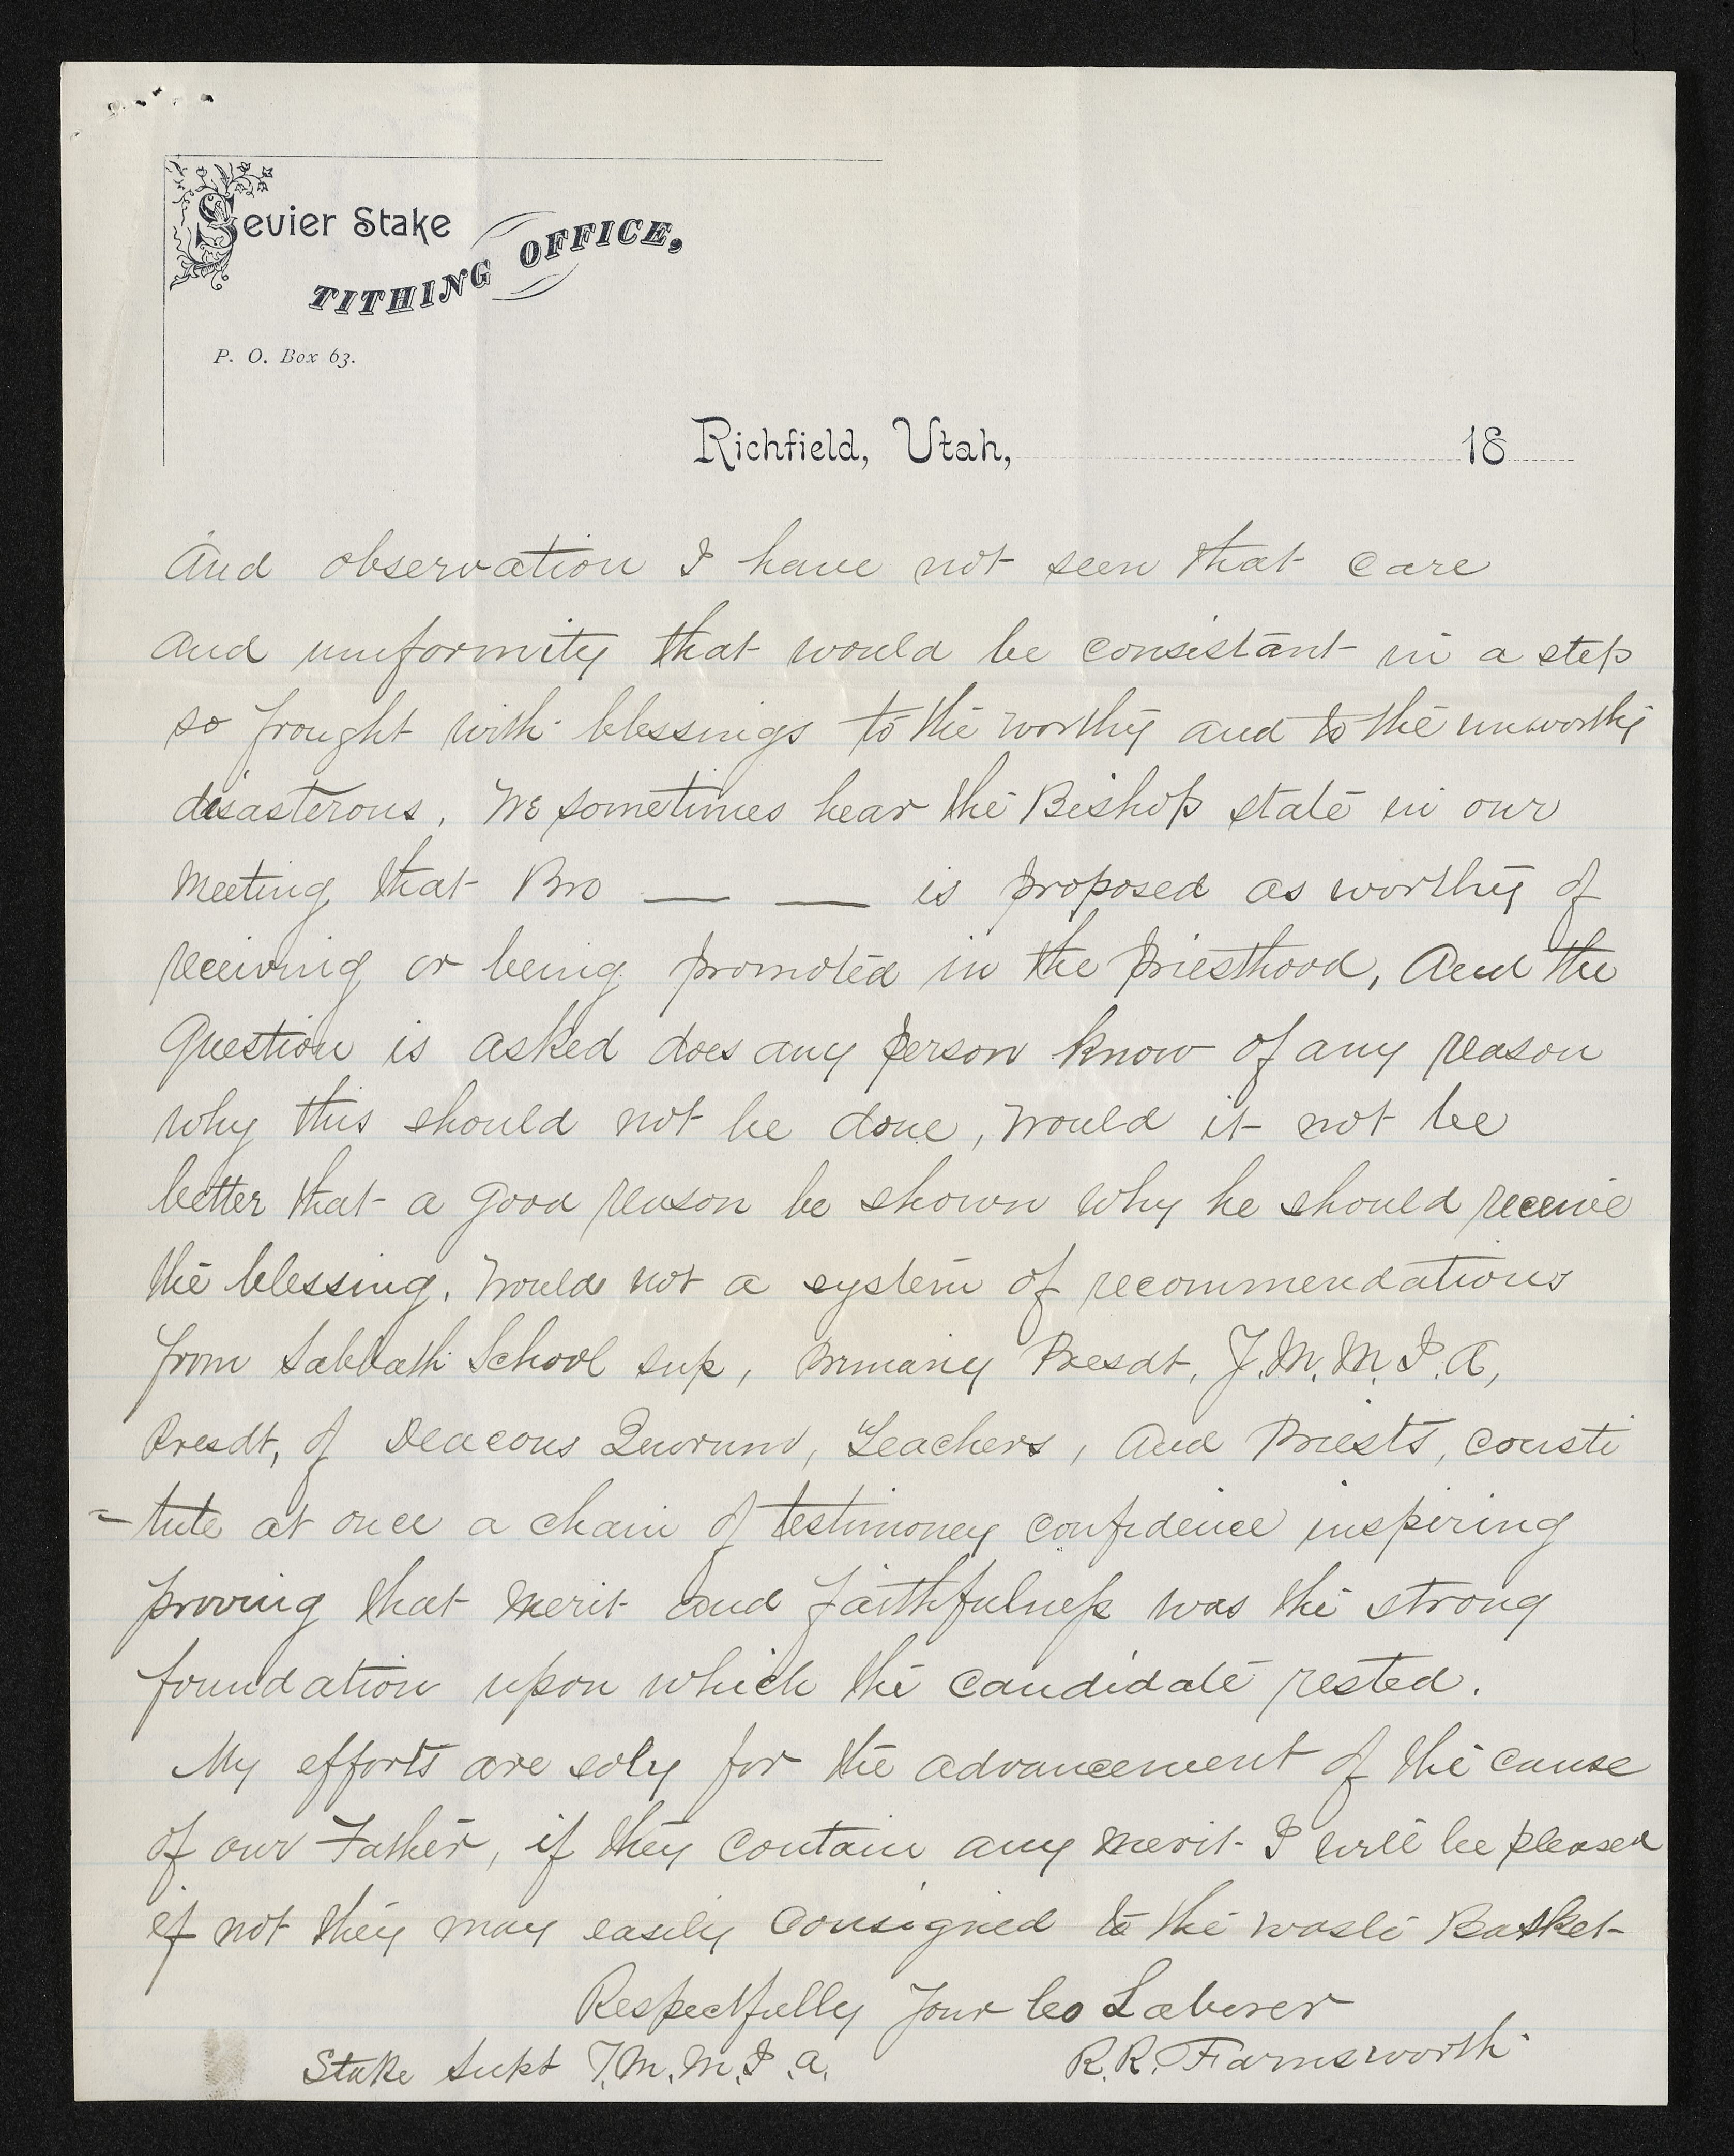 Sevier Stake
TITHING OFFICE,
P. O. Box 63.
Richfield, Utah, 18
And observation I have not seen that care
and uniformity that would be consistant in a step
so frought with blessings to the worthy and to the unworthy
disasterous. We sometimes hear the Bishop state in our
Meeting that Bro — — is proposed as worthy of
receiving or being promoted in the priesthood, And the
Question is asked does any person know of any reason
why this should not be done, would it not be
better that a good reason be shown why he should receive
the blessing. Would not a system of recommendations
from Sabbath School sup, Primary Presdt, Y.M.M.I.A,
Presdt, of Deacons Quorum, Teachers, and Priests, consti
=tute at once a chain of testimoney confidence inspiring
proving that merit and faithfulness was the strong
foundation upon which the candidate rested.
My efforts are soly for the advancement of the cause
of our Father, if they contain any merit I will be pleased
if not they may easily consigned to the waste Basket
Respectfully Your Co Laborer
Stake Supt Y.M.M.I.A. R.R. Farnsworth